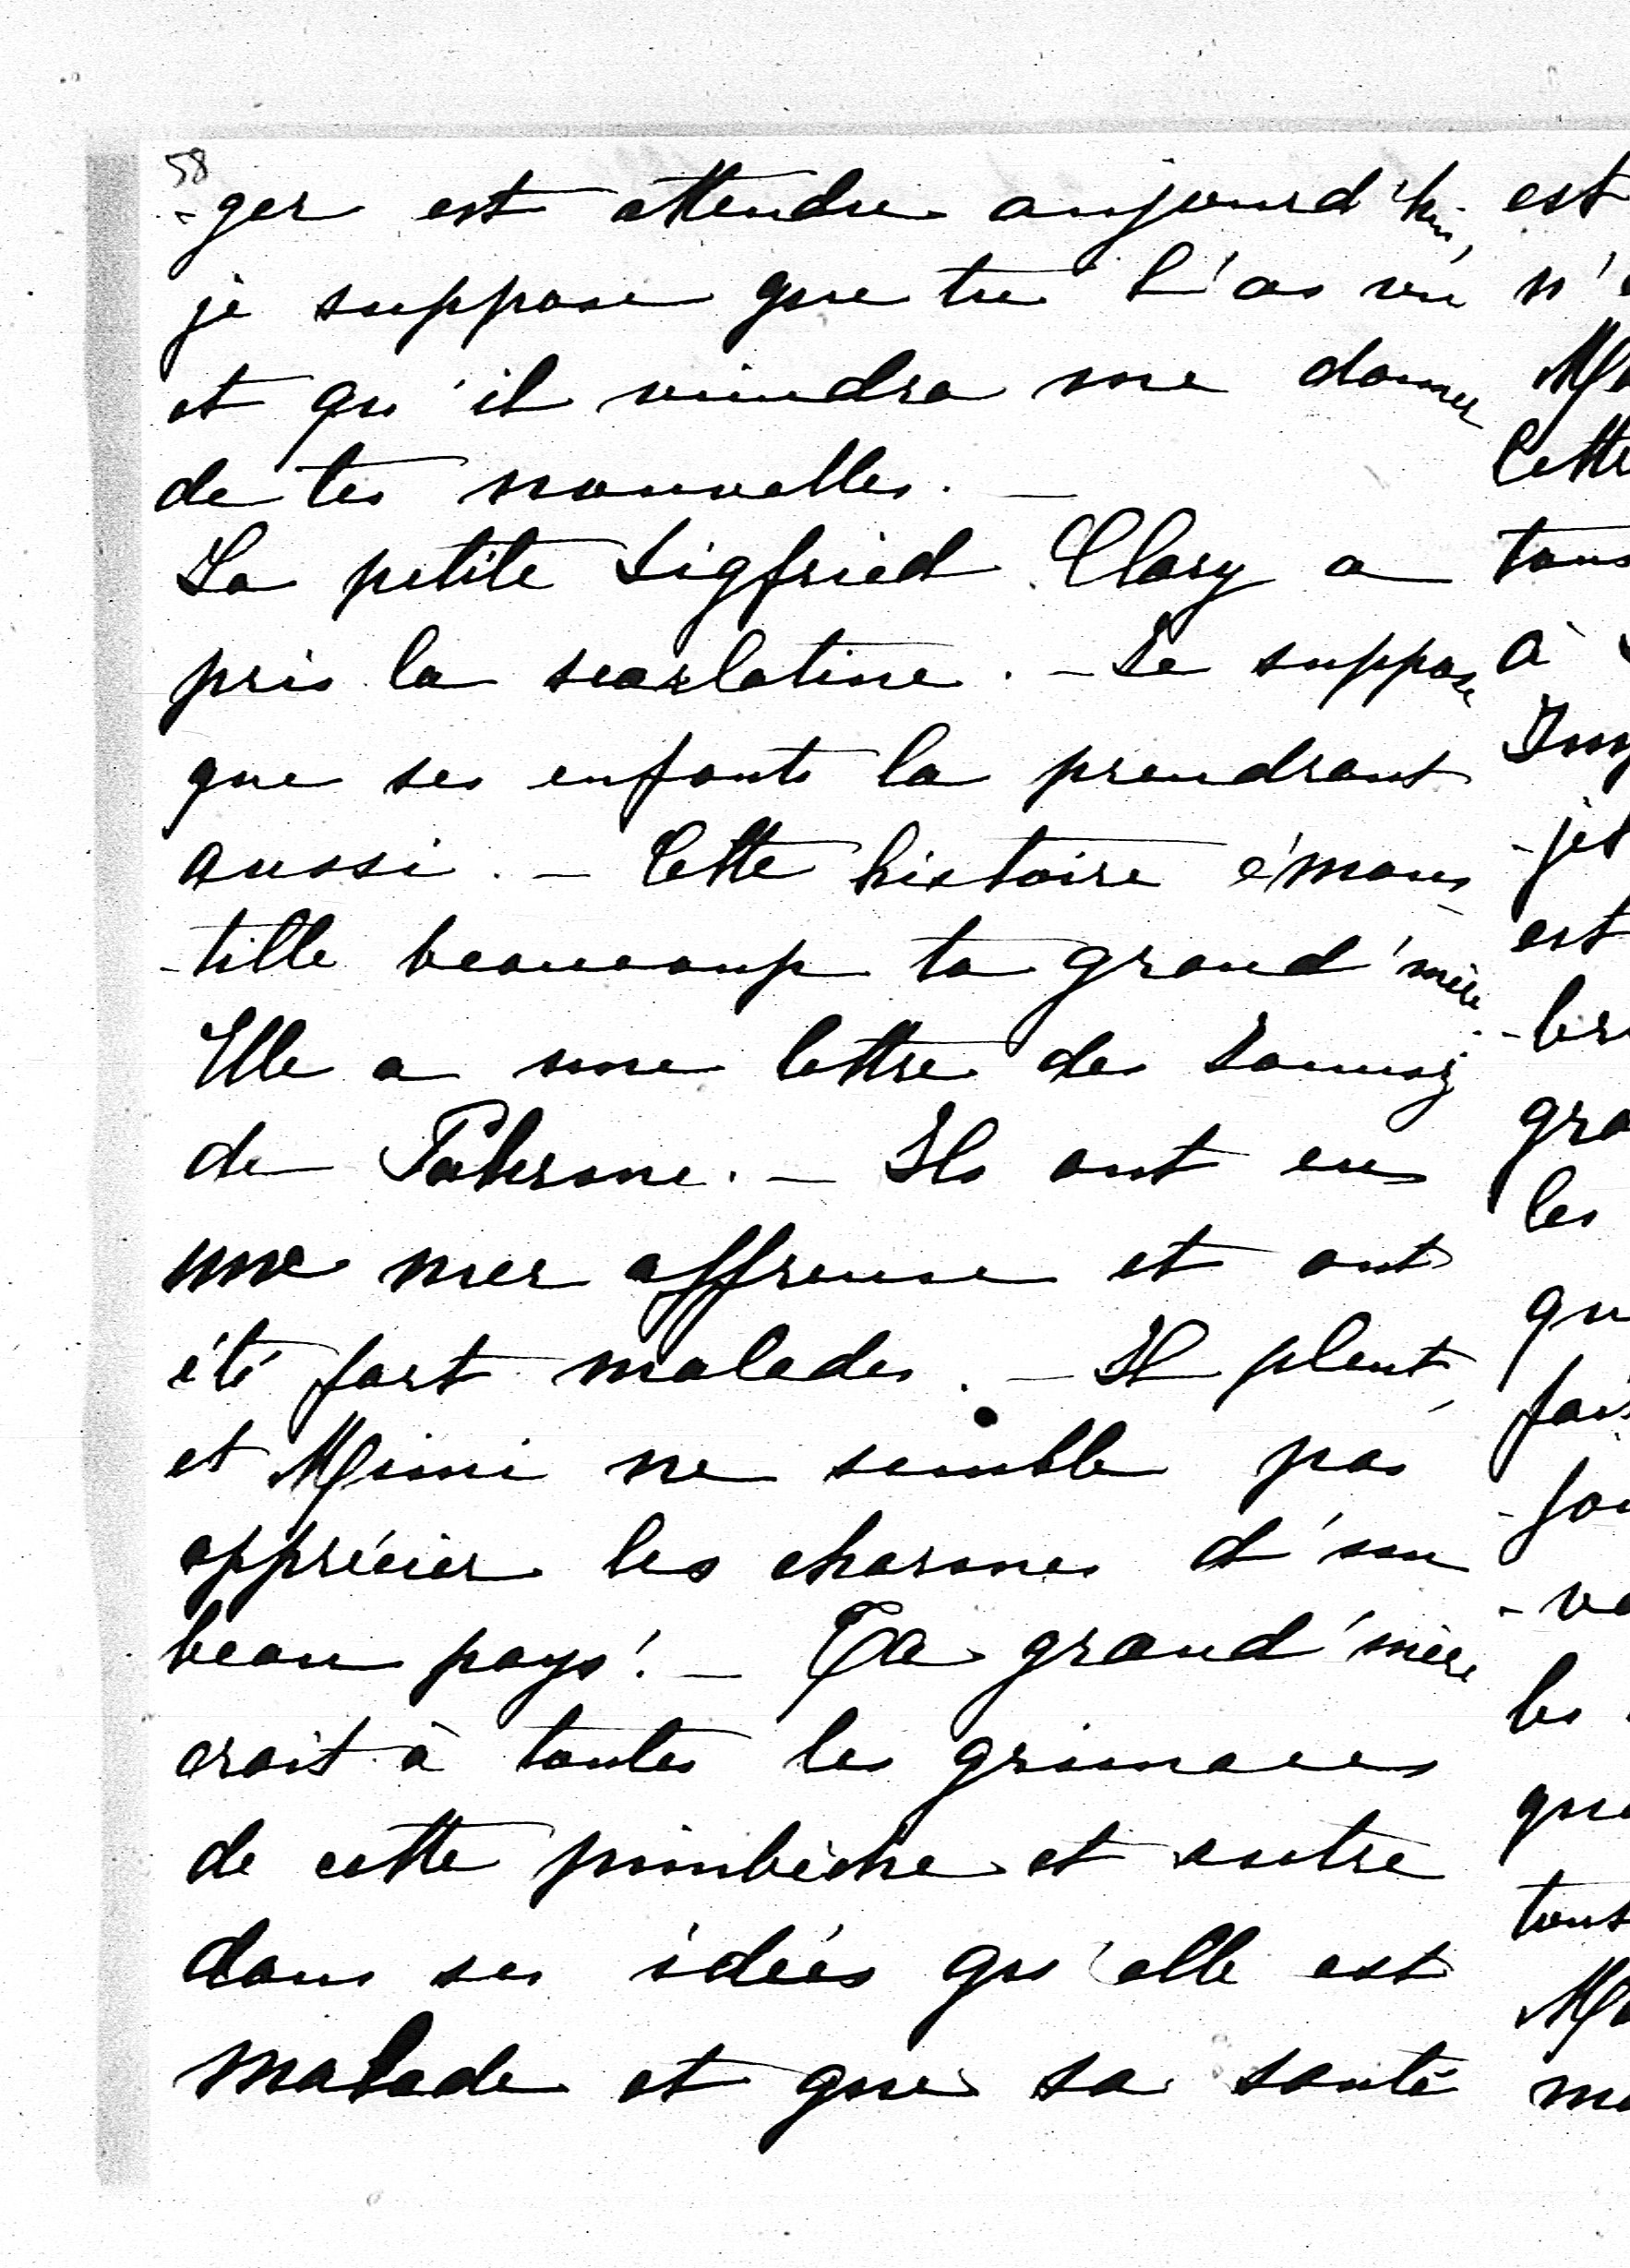 58
-ger est attendu aujourd'hui,
je suppose que tu l'as vu
et qu'il viendra me donner
de tes nouvelles. —
La petite Sigfried Clary a
pris la scarlatine. — Je suppose
que ses enfants la prendront
aussi. — Cette histoire émous
-tille beaucoup ta grand'mère.
Elle a une lettre des
de Palerme. — Ils ont eu
une mer affreuse et ont
été fort malades. — Il pleut,
et Mimi ne semble pas
apprécier les charmes d'un
beau pays! — Ta grand'mère
croit à toutes les grimaces
de cette pimbèche et entre
dans ses idées qu'elle est
malade et que sa santé
est
n'
Cette
tous
à
-jet
est
gra
les
qu
fais
les
que
tout